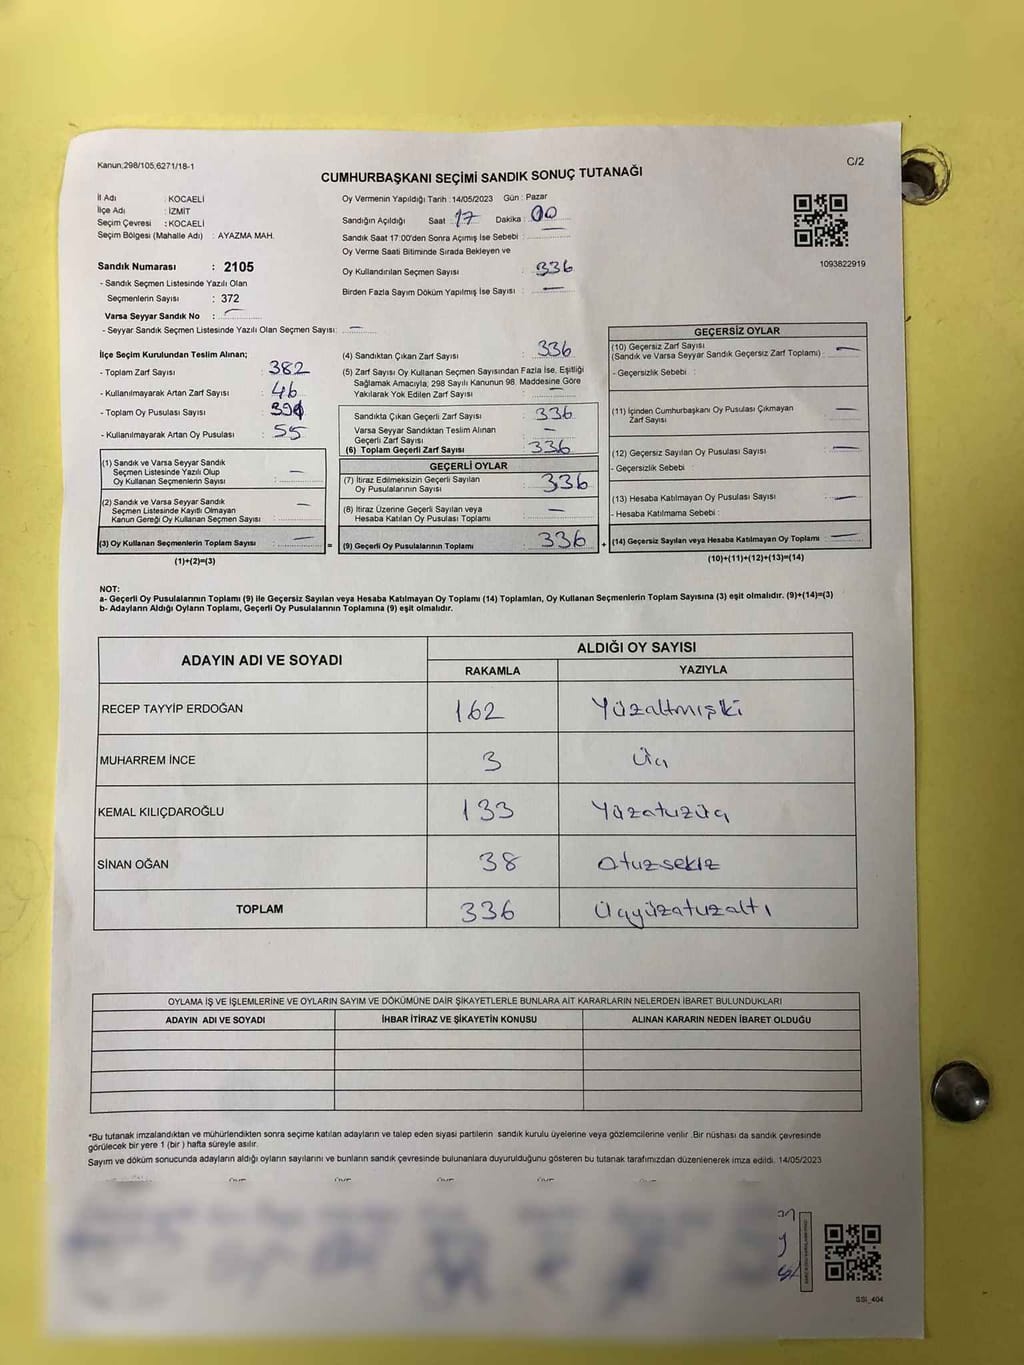 Kanun,298/105,6271/18-1
C/2
CUMHURBAŞKANI SEÇİMİ SANDIK SONUÇ TUTANAĞI
İl Adı : KOCAELİ
İlçe Adı : İZMİT
Seçim Çevresi : KOCAELİ
Seçim Bölgesi (Mahalle Adı) : AYAZMA MAH.
Sandık Numarası : 2105
- Sandık Seçmen Listesinde Yazılı Olan
Seçmenlerin Sayısı : 372
Varsa Seyyar Sandık No : —
- Seyyar Sandık Seçmen Listesinde Yazılı Olan Seçmen Sayısı: —
Oy Vermenin Yapıldığı Tarih :14/05/2023 Gün : Pazar
Sandığın Açıldığı Saat : 17 Dakika : 00
Sandık Saat 17:00'den Sonra Açımış İse Sebebi : —
Oy Verme Saati Bitiminde Sırada Bekleyen ve
Oy Kullandırılan Seçmen Sayısı : 336
Birden Fazla Sayım Döküm Yapılmış İse Sayısı : —
1093822919
İlçe Seçim Kurulundan Teslim Alınan;
- Toplam Zarf Sayısı : 382
- Kullanılmayarak Artan Zarf Sayısı : 46
- Toplam Oy Pusulası Sayısı :
- Kullanılmayarak Artan Oy Pusulası : 55
(1) Sandık ve Varsa Seyyar Sandık
Seçmen Listesinde Yazılı Olup
Oy Kullanan Seçmenlerin Sayısı : —
(2) Sandık ve Varsa Seyyar Sandık
Seçmen Listesinde Kayıtlı Olmayan
Kanun Gereği Oy Kullanan Seçmen Sayısı : —
(3) Oy Kullanan Seçmenlerin Toplam Sayısı : —
(1)+(2)=(3)
=
(4) Sandıktan Çıkan Zarf Sayısı : 336
(5) Zarf Sayısı Oy Kullanan Seçmen Sayısından Fazla İse, Eşitliği
Sağlamak Amacıyla; 298 Sayılı Kanunun 98. Maddesine Göre
Yakılarak Yok Edilen Zarf Sayısı : —
Sandıkta Çıkan Geçerli Zarf Sayısı : 336
Varsa Seyyar Sandıktan Teslim Alınan
Geçerli Zarf Sayısı : —
(6) Toplam Geçerli Zarf Sayısı : 336
GEÇERLİ OYLAR
(7) İtiraz Edilmeksizin Geçerli Sayılan
Oy Pusulalarının Sayısı : 336
(8) İtiraz Üzerine Geçerli Sayılan veya
Hesaba Katılan Oy Pusulası Toplamı : —
(9) Geçerli Oy Pusulalarının Toplamı : 336
+
GEÇERSİZ OYLAR
(10) Geçersiz Zarf Sayısı
(Sandık ve Varsa Seyyar Sandık Geçersiz Zarf Toplamı) : —
- Geçersizlik Sebebi :
(11) İçinden Cumhurbaşkanı Oy Pusulası Çıkmayan
Zarf Sayısı : —
(12) Geçersiz Sayılan Oy Pusulası Sayısı : —
- Geçersizlik Sebebi :
(13) Hesaba Katılmayan Oy Pusulası Sayısı : —
- Hesaba Katılmama Sebebi :
(14) Geçersiz Sayılan veya Hesaba Katılmayan Oy Toplamı : —
(10)+(11)+(12)+(13)=(14)
NOT:
a- Geçerli Oy Pusulalarının Toplamı (9) ile Geçersiz Sayılan veya Hesaba Katılmayan Oy Toplamı (14) Toplamları, Oy Kullanan Seçmenlerin Toplam Sayısına (3) eşit olmalıdır. (9)+(14)=(3)
b- Adayların Aldığı Oyların Toplamı, Geçerli Oy Pusulalarının Toplamına (9) eşit olmalıdır.
ADAYIN ADI VE SOYADI
ALDIĞI OY SAYISI
RAKAMLA YAZIYLA
RECEP TAYYİP ERDOĞAN 162 Yüzaltmışiki
MUHARREM İNCE 3 Üç
KEMAL KILIÇDAROĞLU 133 Yüzotuzüç
SİNAN OĞAN 38 Otuzsekiz
TOPLAM 336 Üçyüzotuzaltı
OYLAMA İŞ VE İŞLEMLERİNE VE OYLARIN SAYIM VE DÖKÜMÜNE DAİR ŞİKAYETLERLE BUNLARA AİT KARARLARIN NELERDEN İBARET BULUNDUKLARI
ADAYIN ADI VE SOYADI İHBAR İTİRAZ VE ŞİKAYETİN KONUSU ALINAN KARARIN NEDEN İBARET OLDUĞU
*Bu tutanak imzalandıktan ve mühürlendikten sonra seçime katılan adayların ve talep eden siyasi partilerin sandık kurulu üyelerine veya gözlemcilerine verilir .Bir nüshası da sandık çevresinde
görülecek bir yere 1 (bir ) hafta süreyle asılır.
Sayım ve döküm sonucunda adayların aldığı oyların sayılarını ve bunların sandık çevresinde bulunanlara duyurulduğunu gösteren bu tutanak tarafımızdan düzenlenerek imza edildi. 14/05/2023
SSİ_404